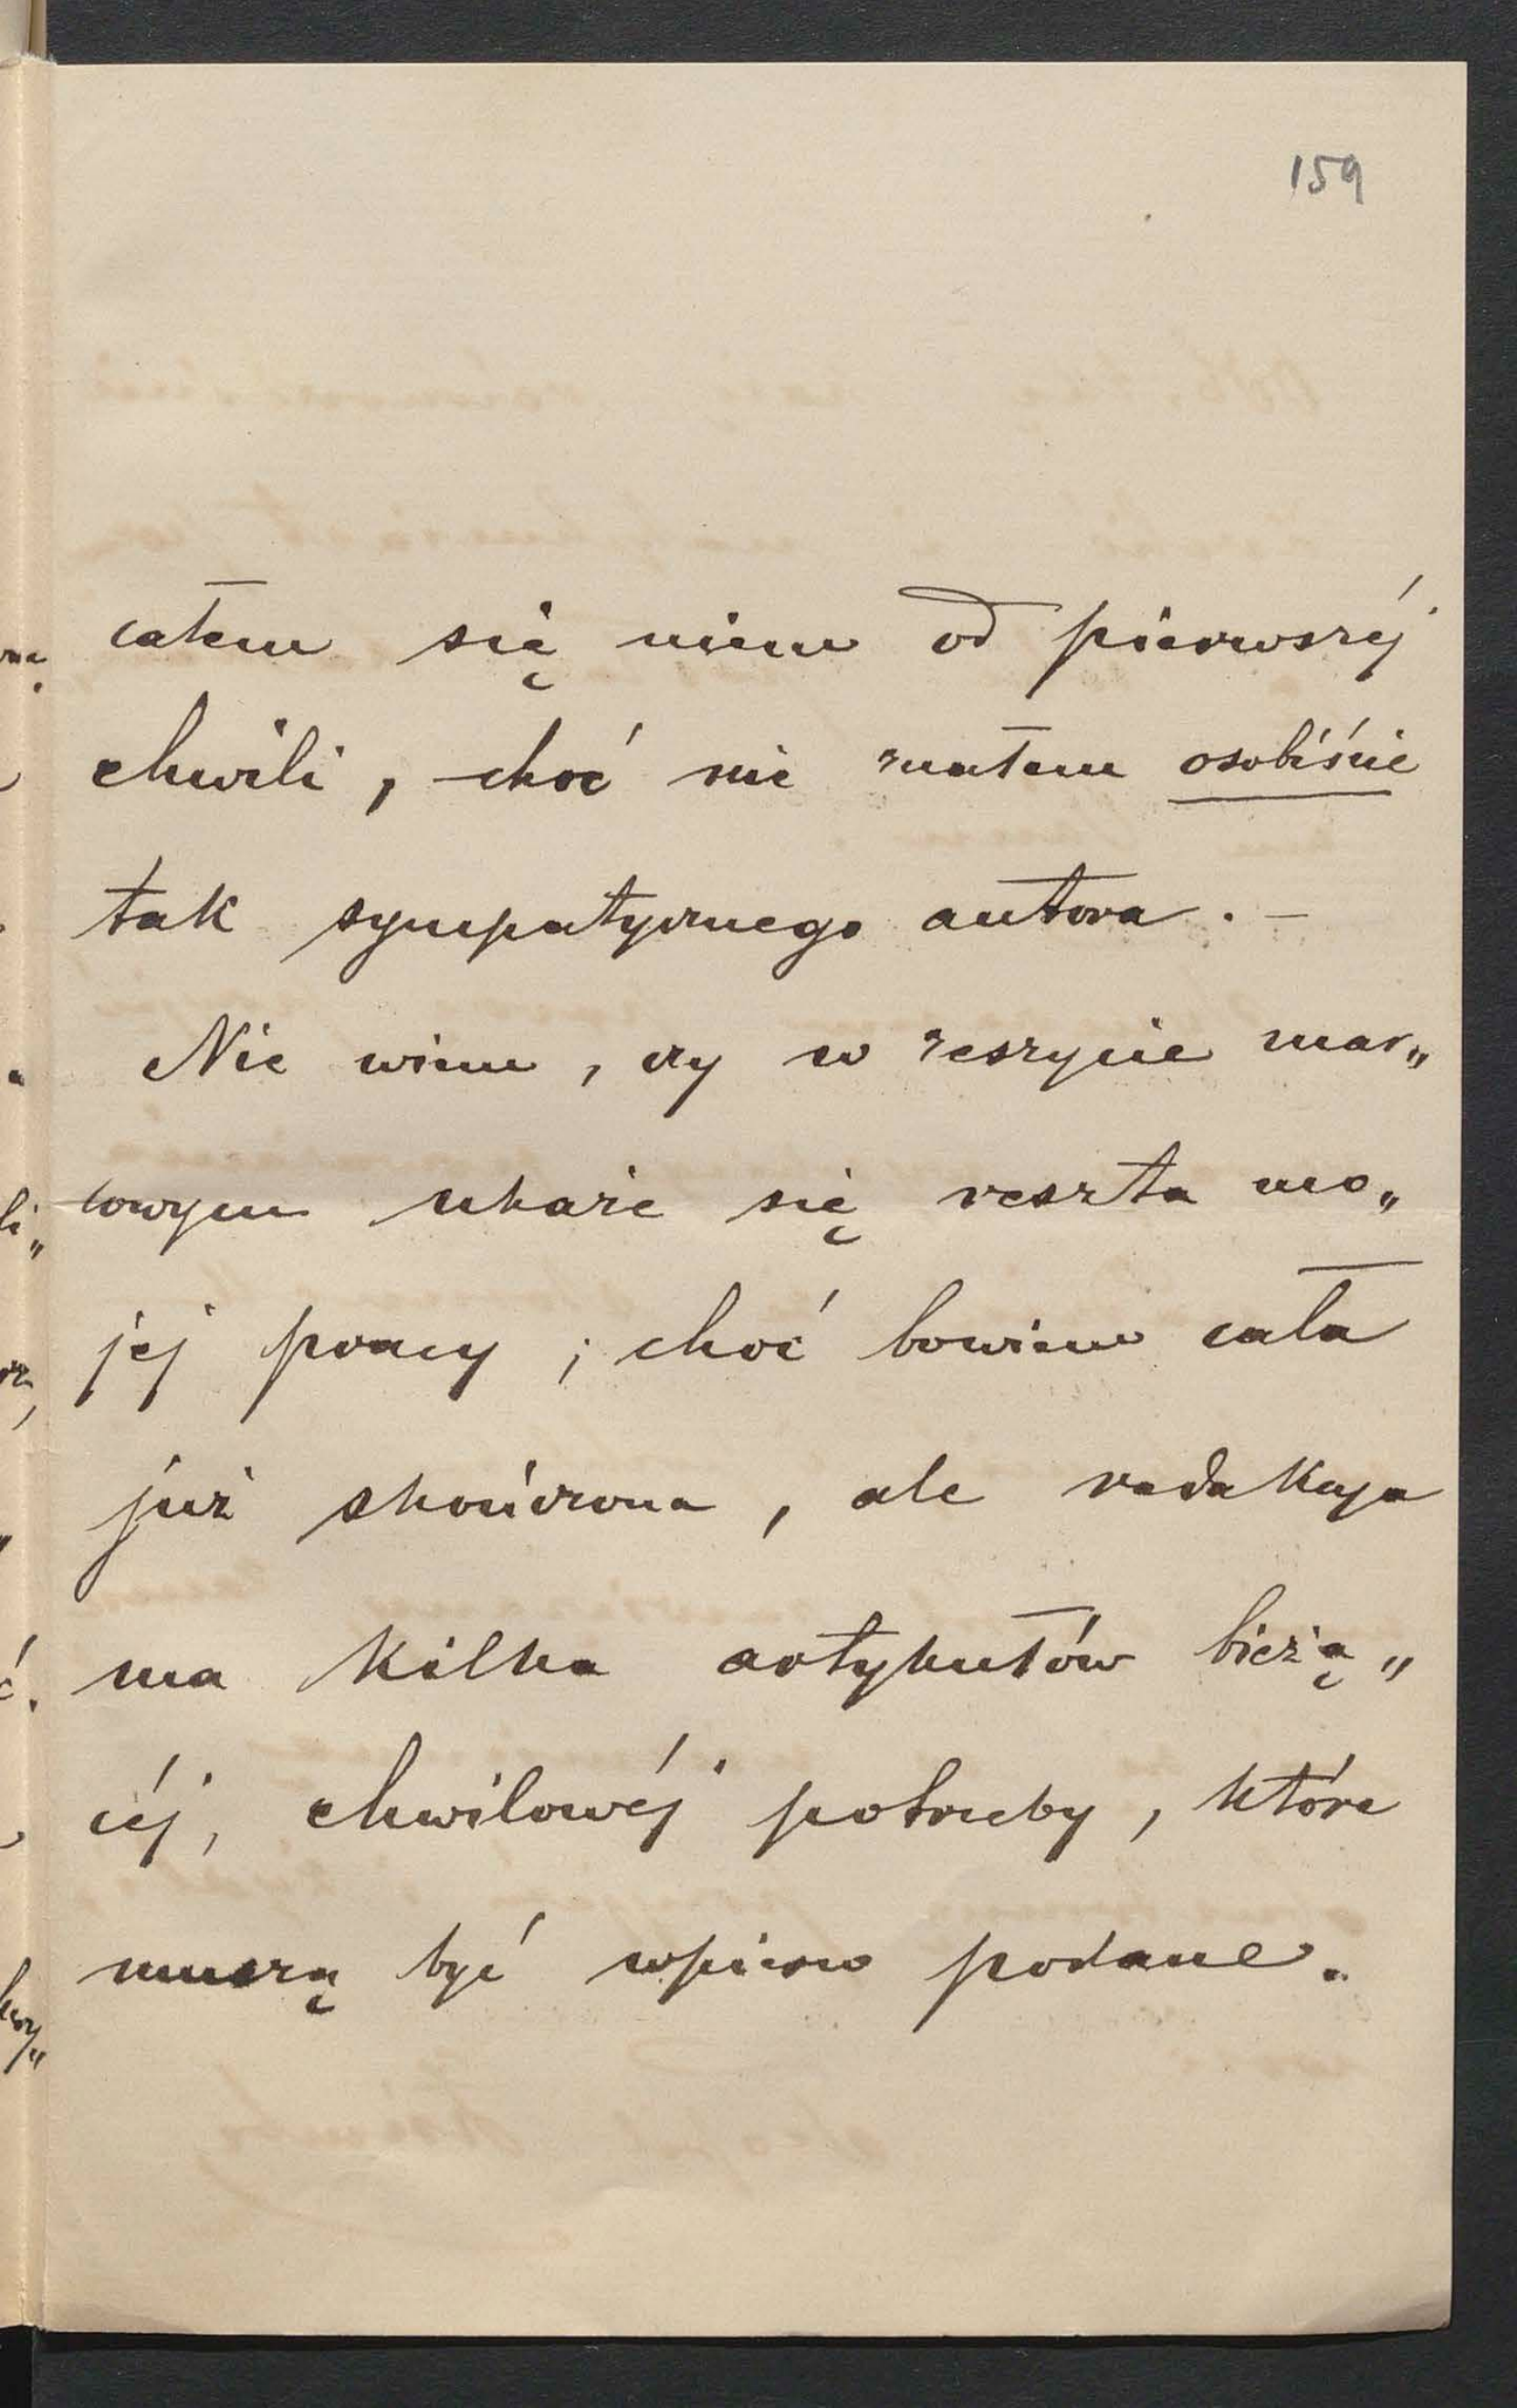 159
całem się niem od pierwszéj
chwili, choć nie znałem osobiśnie
tak sympatycznego autora. –
Nie wiem, czy w zeszycie mar„
cowym ukaże się reszta mo„
jej pracy; choć bowiem cała
już skończona, ale redakcya
ma kilka artykułów bieżą„
céj, chwilowéj potrzeby, które
muszą być wpierw podane.